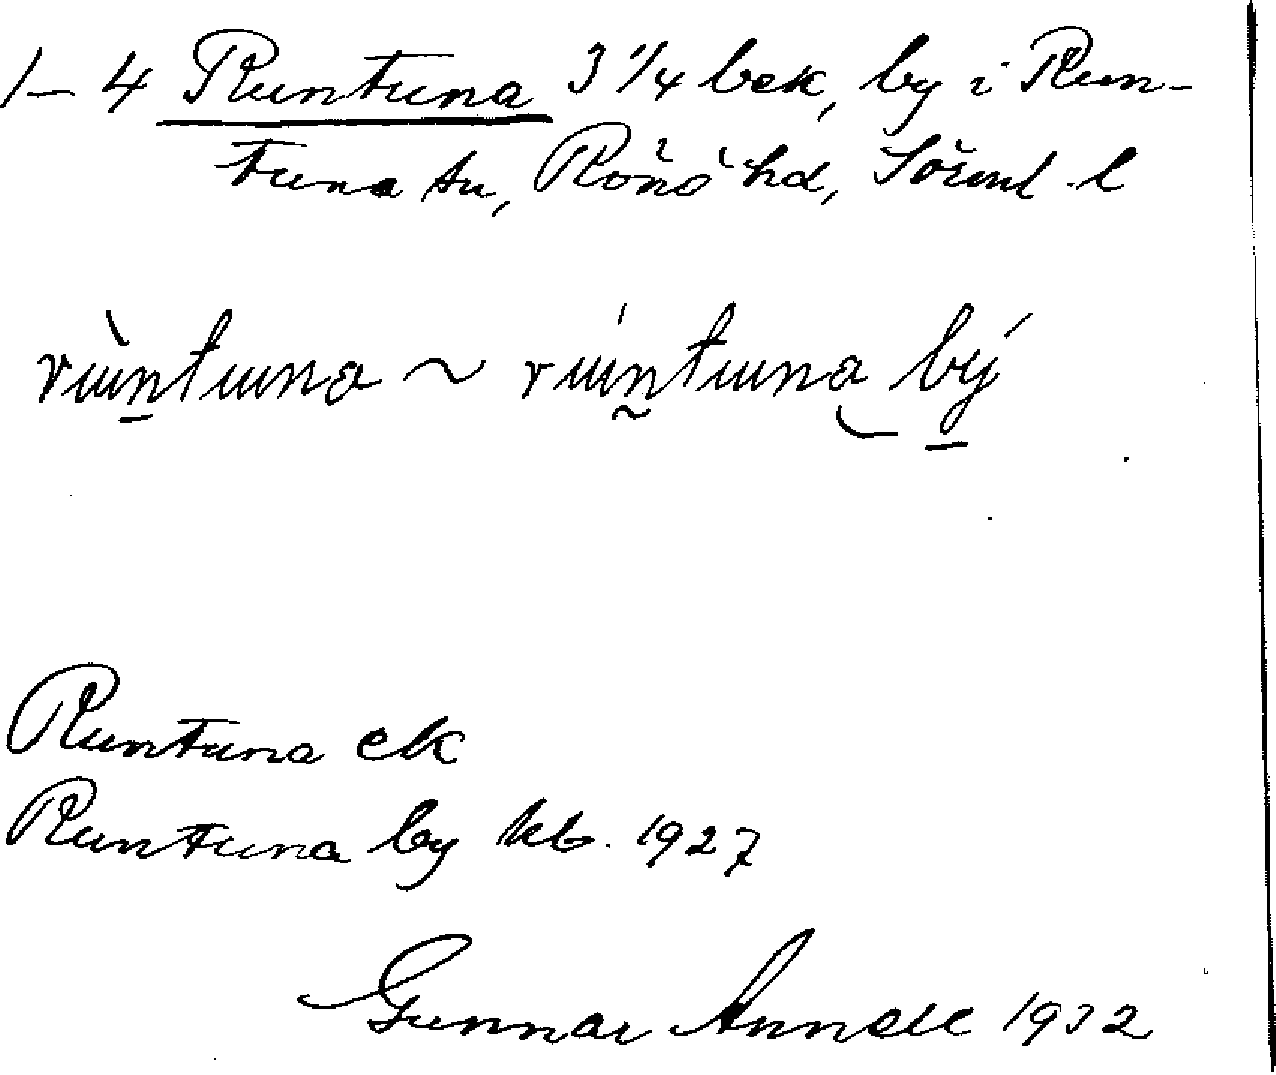 1–4 Runtuna 3 1/4 bek, by i Run-
tuna sn, Rönö hd, Söreml l
rùntuna ~ rúntuna bý
Runtuna ek
Runtuna by kb. 1927
Gunnar Annell 1932